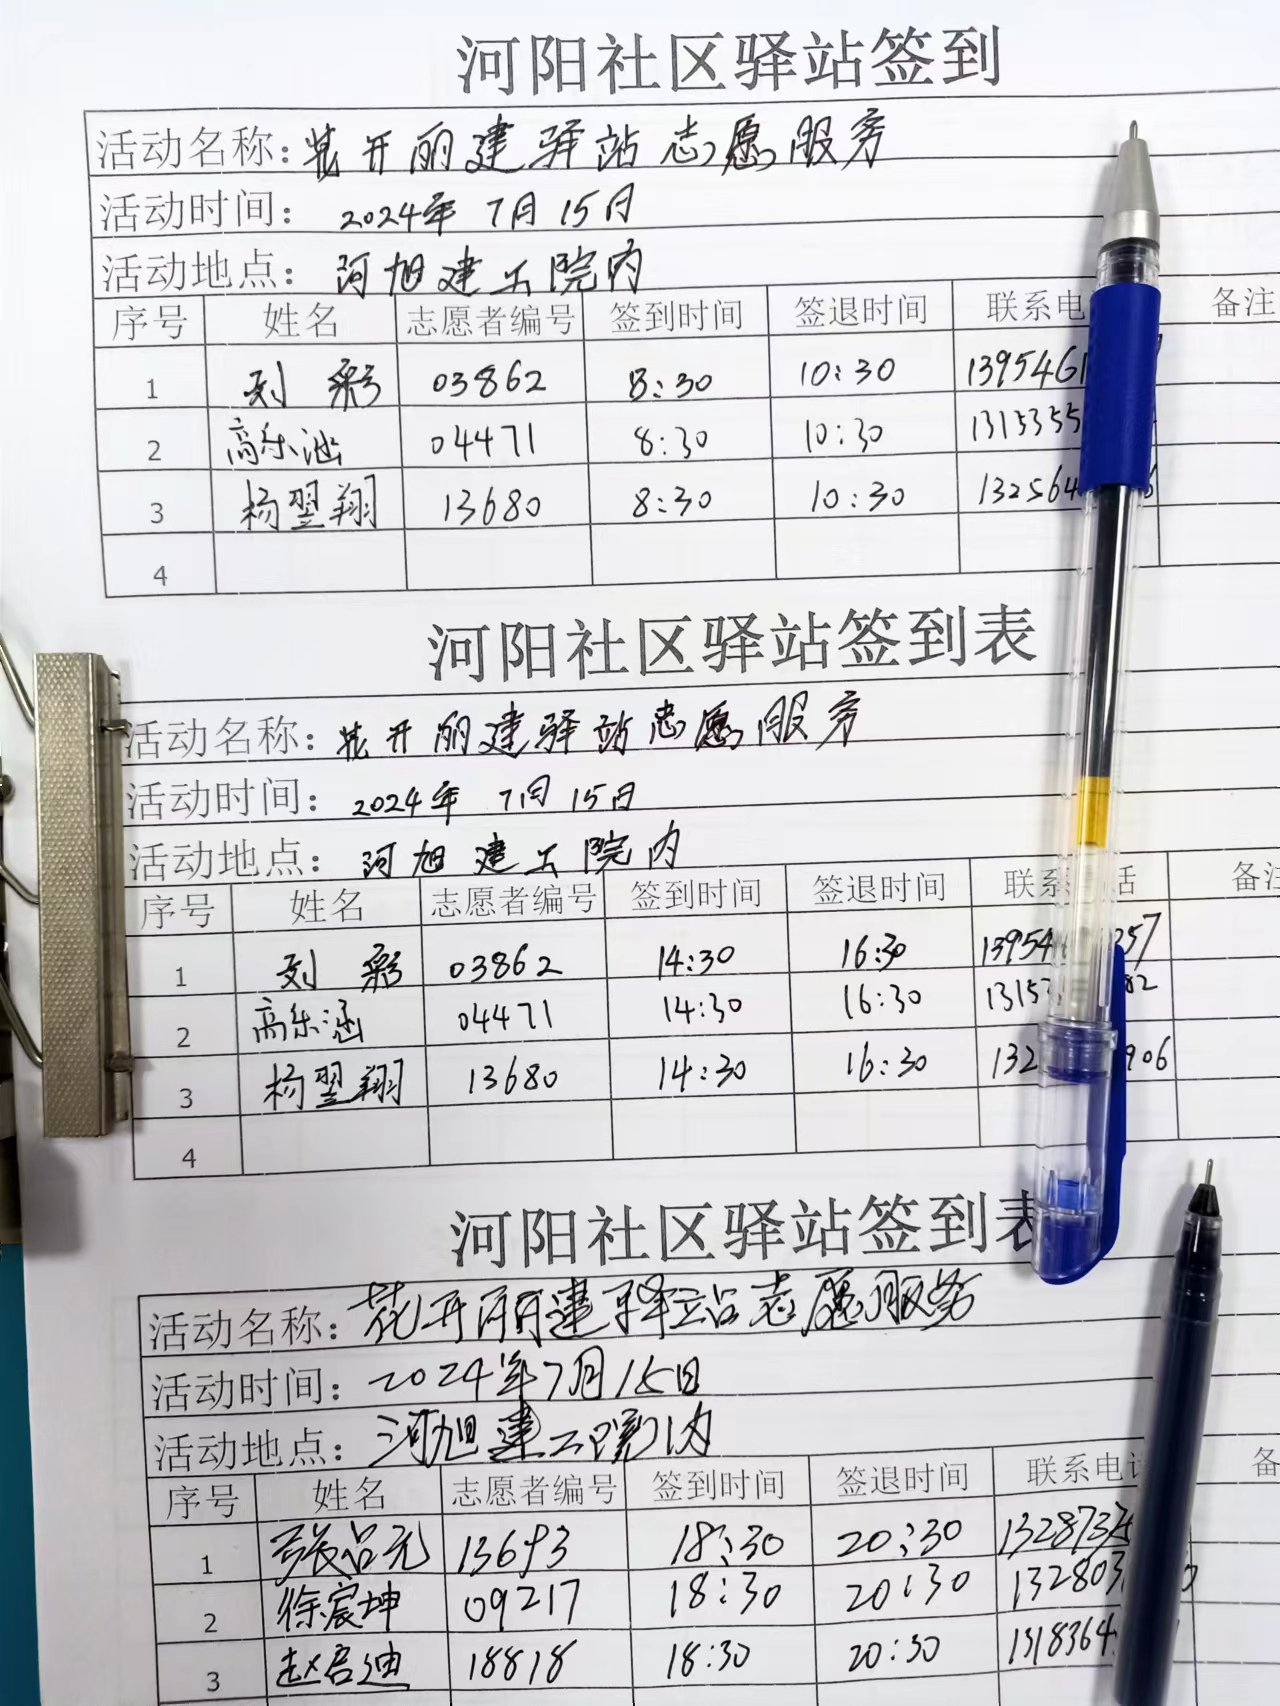 河阳社区驿站签到
活动名称：花开丽建驿站志愿服务
活动时间：2024年 7月15日
活动地点：河旭建工院内
序号 姓名 志愿者编号 签到时间 签退时间 联系电 备注
1 刘彩 03862 8:30 10:30 1395461
2 高乐涵 04471 8:30 10:30 1315355
3 杨翌翔 13680 8:30 10:30 132564 6
4
河阳社区驿站签到表
活动名称：花开丽建驿站志愿服务
活动时间：2024年 7月15日
活动地点：河旭建工院内
序号 姓名 志愿者编号 签到时间 签退时间 联系 话 备注
1 刘彩 03862 14:30 16:30 13954 357
2 高乐涵 04471 14:30 16:30 1315 82
3 杨翌翔 13680 14:30 16:30 132 906
4
河阳社区驿站签到表
活动名称：花开丽建驿站志愿服务
活动时间：2024年7月15日
活动地点：河旭建工院内
序号 姓名 志愿者编号 签到时间 签退时间 联系电话 备
1 张吕元 13693 18:30 20:30 132873
2 徐宸坤 09217 18:30 20:30 132803 0
3 赵君迪 18818 18:30 20:30 1318364